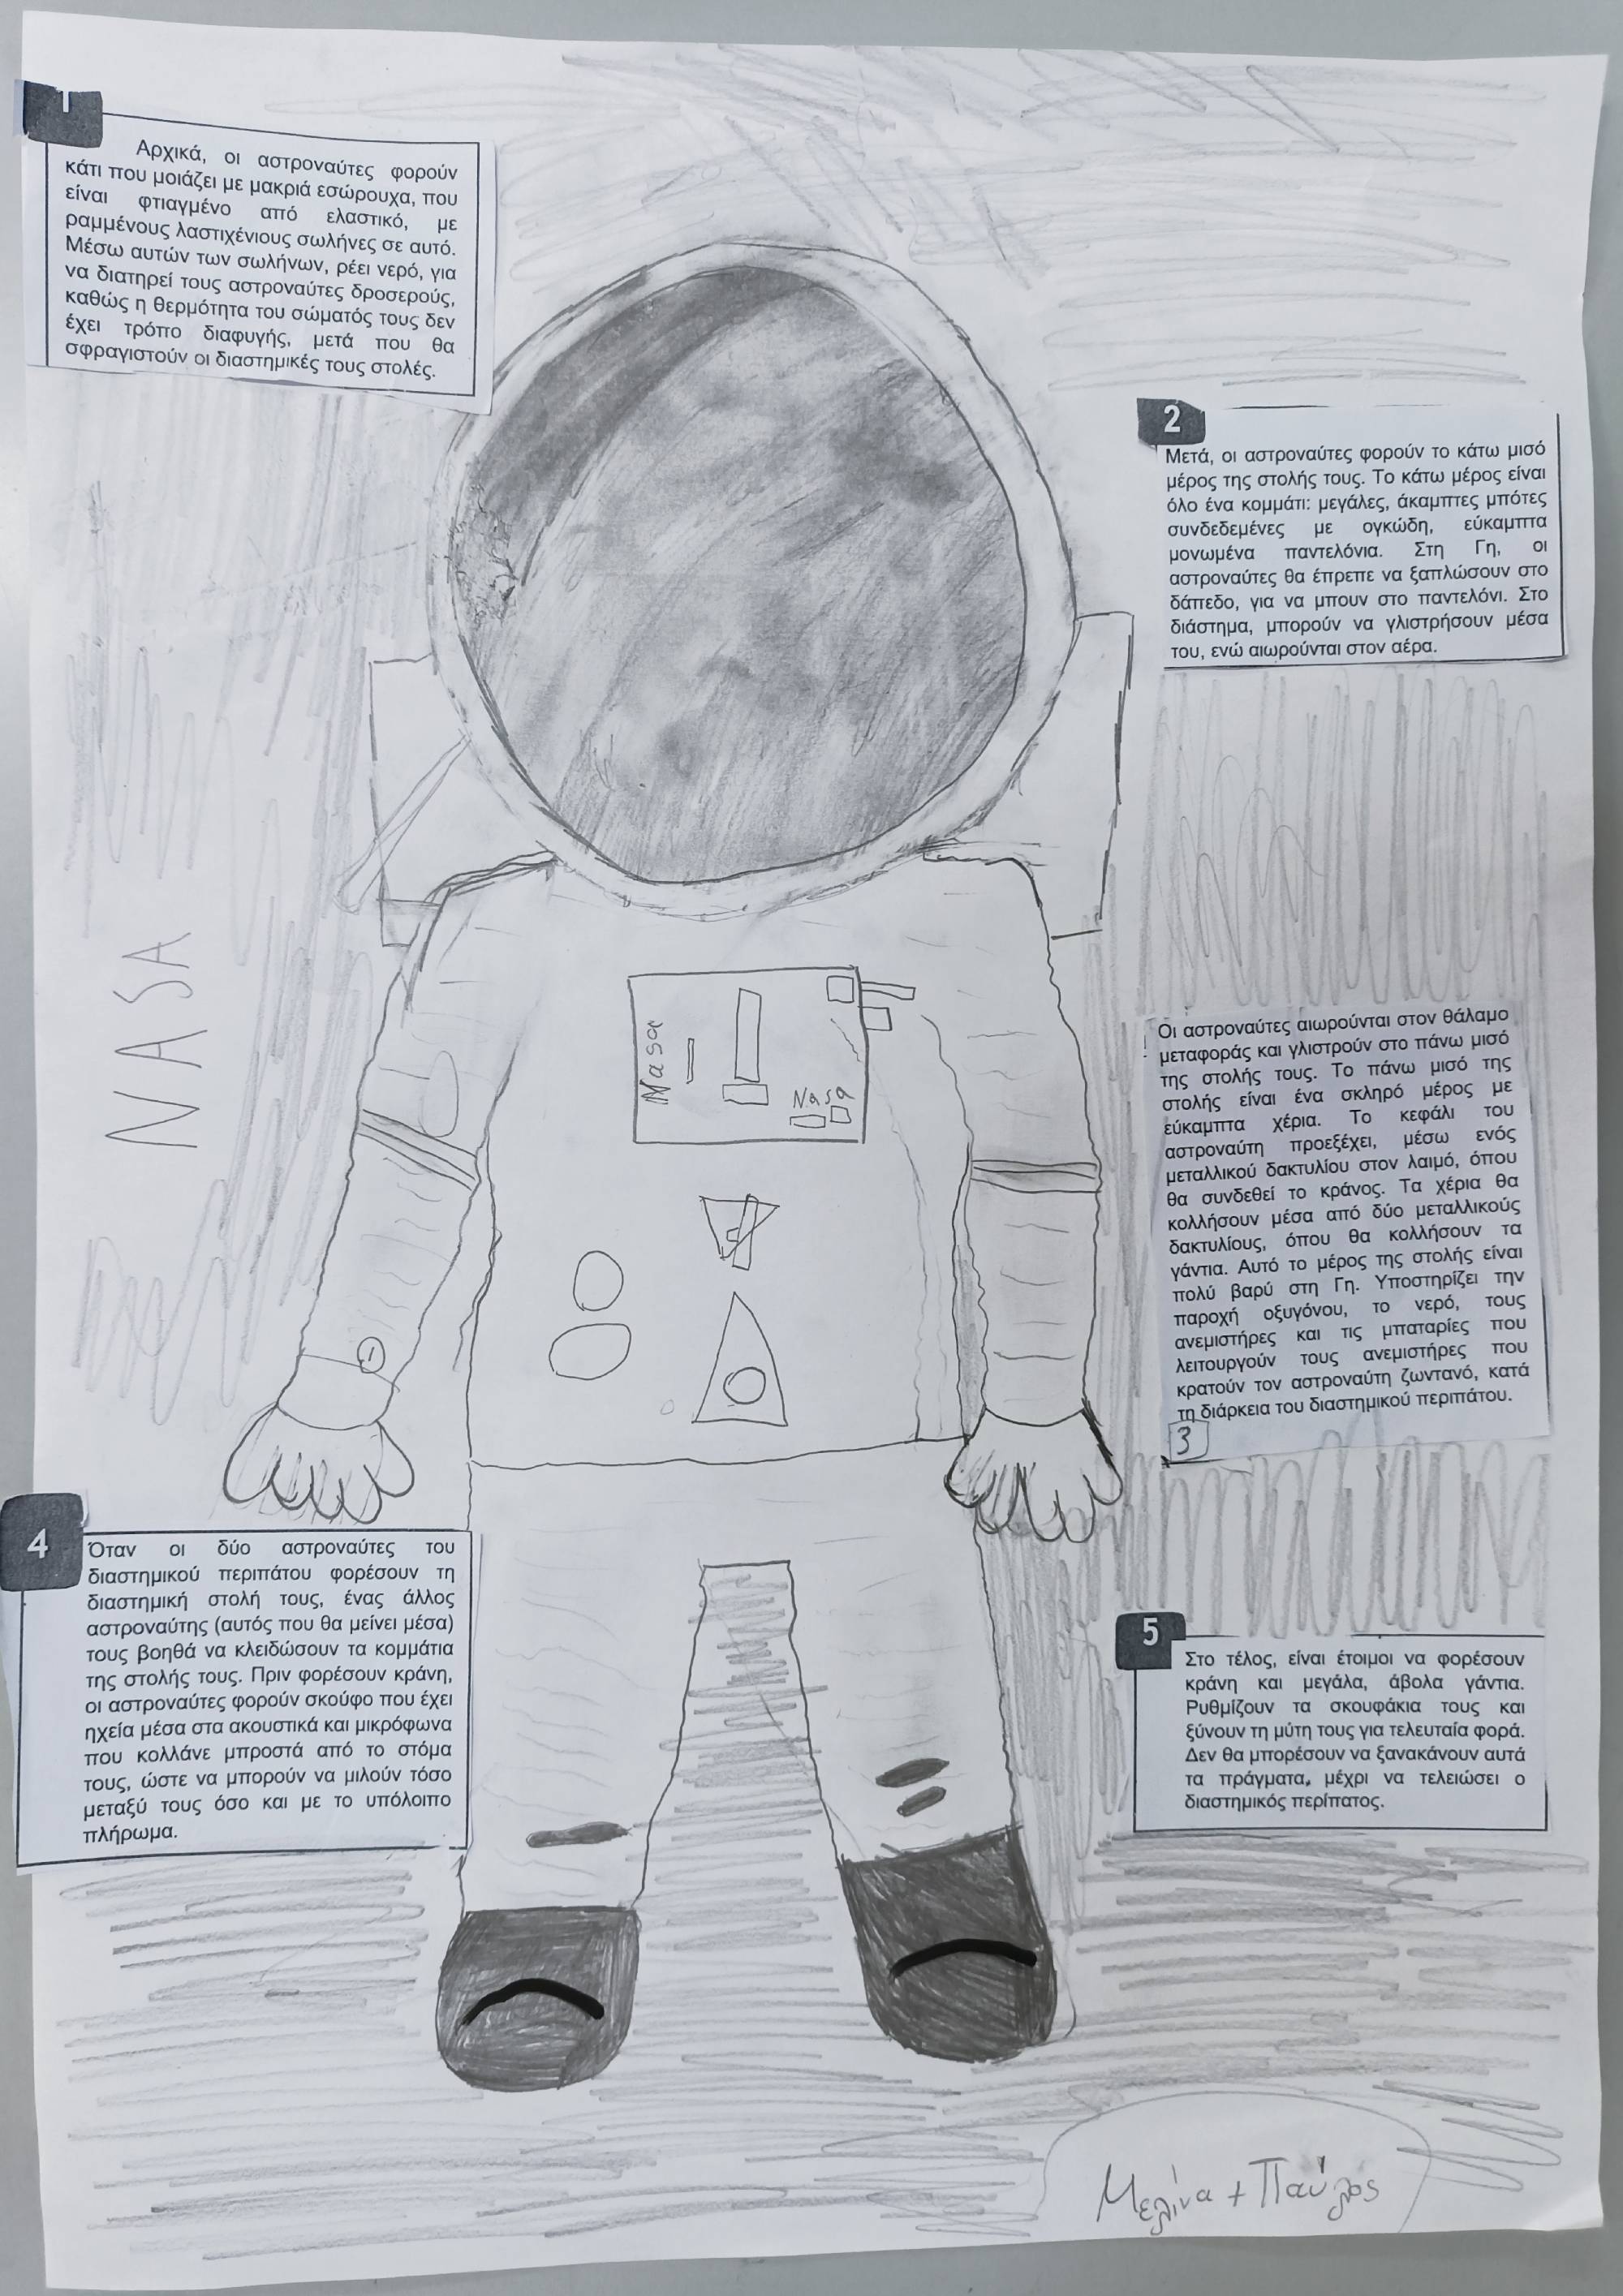 1
Αρχικά, οι αστροναύτες φορούν
κάτι που μοιάζει με μακριά εσώρουχα, που
είναι φτιαγμένο από ελαστικό, με
ραμμένους λαστιχένιους σωλήνες σε αυτό.
Μέσω αυτών των σωλήνων, ρέει νερό, για
να διατηρεί τους αστροναύτες δροσερούς,
καθώς η θερμότητα του σώματός τους δεν
έχει τρόπο διαφυγής, μετά που θα
σφραγιστούν οι διαστημικές τους στολές.
2
Μετά, οι αστροναύτες φορούν το κάτω μισό
μέρος της στολής τους. Το κάτω μέρος είναι
όλο ένα κομμάτι: μεγάλες, άκαμπτες μπότες
συνδεδεμένες με ογκώδη, εύκαμπτα
μονωμένα παντελόνια. Στη Γη, οι
αστροναύτες θα έπρεπε να ξαπλώσουν στο
δάπεδο, για να μπουν στο παντελόνι. Στο
διάστημα, μπορούν να γλιστρήσουν μέσα
του, ενώ αιωρούνται στον αέρα.
NASA
Nasa
Nasa
Οι αστροναύτες αιωρούνται στον θάλαμο
μεταφοράς και γλιστρούν στο πάνω μισό
της στολής τους. Το πάνω μισό της
στολής είναι ένα σκληρό μέρος με
εύκαμπτα χέρια. Το κεφάλι του
αστροναύτη προεξέχει, μέσω ενός
μεταλλικού δακτυλίου στον λαιμό, όπου
θα συνδεθεί το κράνος. Τα χέρια θα
κολλήσουν μέσα από δύο μεταλλικούς
δακτυλίους, όπου θα κολλήσουν τα
γάντια. Αυτό το μέρος της στολής είναι
πολύ βαρύ στη Γη. Υποστηρίζει την
παροχή οξυγόνου, το νερό, τους
ανεμιστήρες και τις μπαταρίες που
λειτουργούν τους ανεμιστήρες που
κρατούν τον αστροναύτη ζωντανό, κατά
τη διάρκεια του διαστημικού περιπάτου.
3
4
Όταν οι δύο αστροναύτες του
διαστημικού περιπάτου φορέσουν τη
διαστημική στολή τους, ένας άλλος
αστροναύτης (αυτός που θα μείνει μέσα)
τους βοηθά να κλειδώσουν τα κομμάτια
της στολής τους. Πριν φορέσουν κράνη,
οι αστροναύτες φορούν σκούφο που έχει
ηχεία μέσα στα ακουστικά και μικρόφωνα
που κολλάνε μπροστά από το στόμα
τους, ώστε να μπορούν να μιλούν τόσο
μεταξύ τους όσο και με το υπόλοιπο
πλήρωμα.
5
Στο τέλος, είναι έτοιμοι να φορέσουν
κράνη και μεγάλα, άβολα γάντια.
Ρυθμίζουν τα σκουφάκια τους και
ξύνουν τη μύτη τους για τελευταία φορά.
Δεν θα μπορέσουν να ξανακάνουν αυτά
τα πράγματα, μέχρι να τελειώσει ο
διαστημικός περίπατος.
Μελίνα + Παύλος